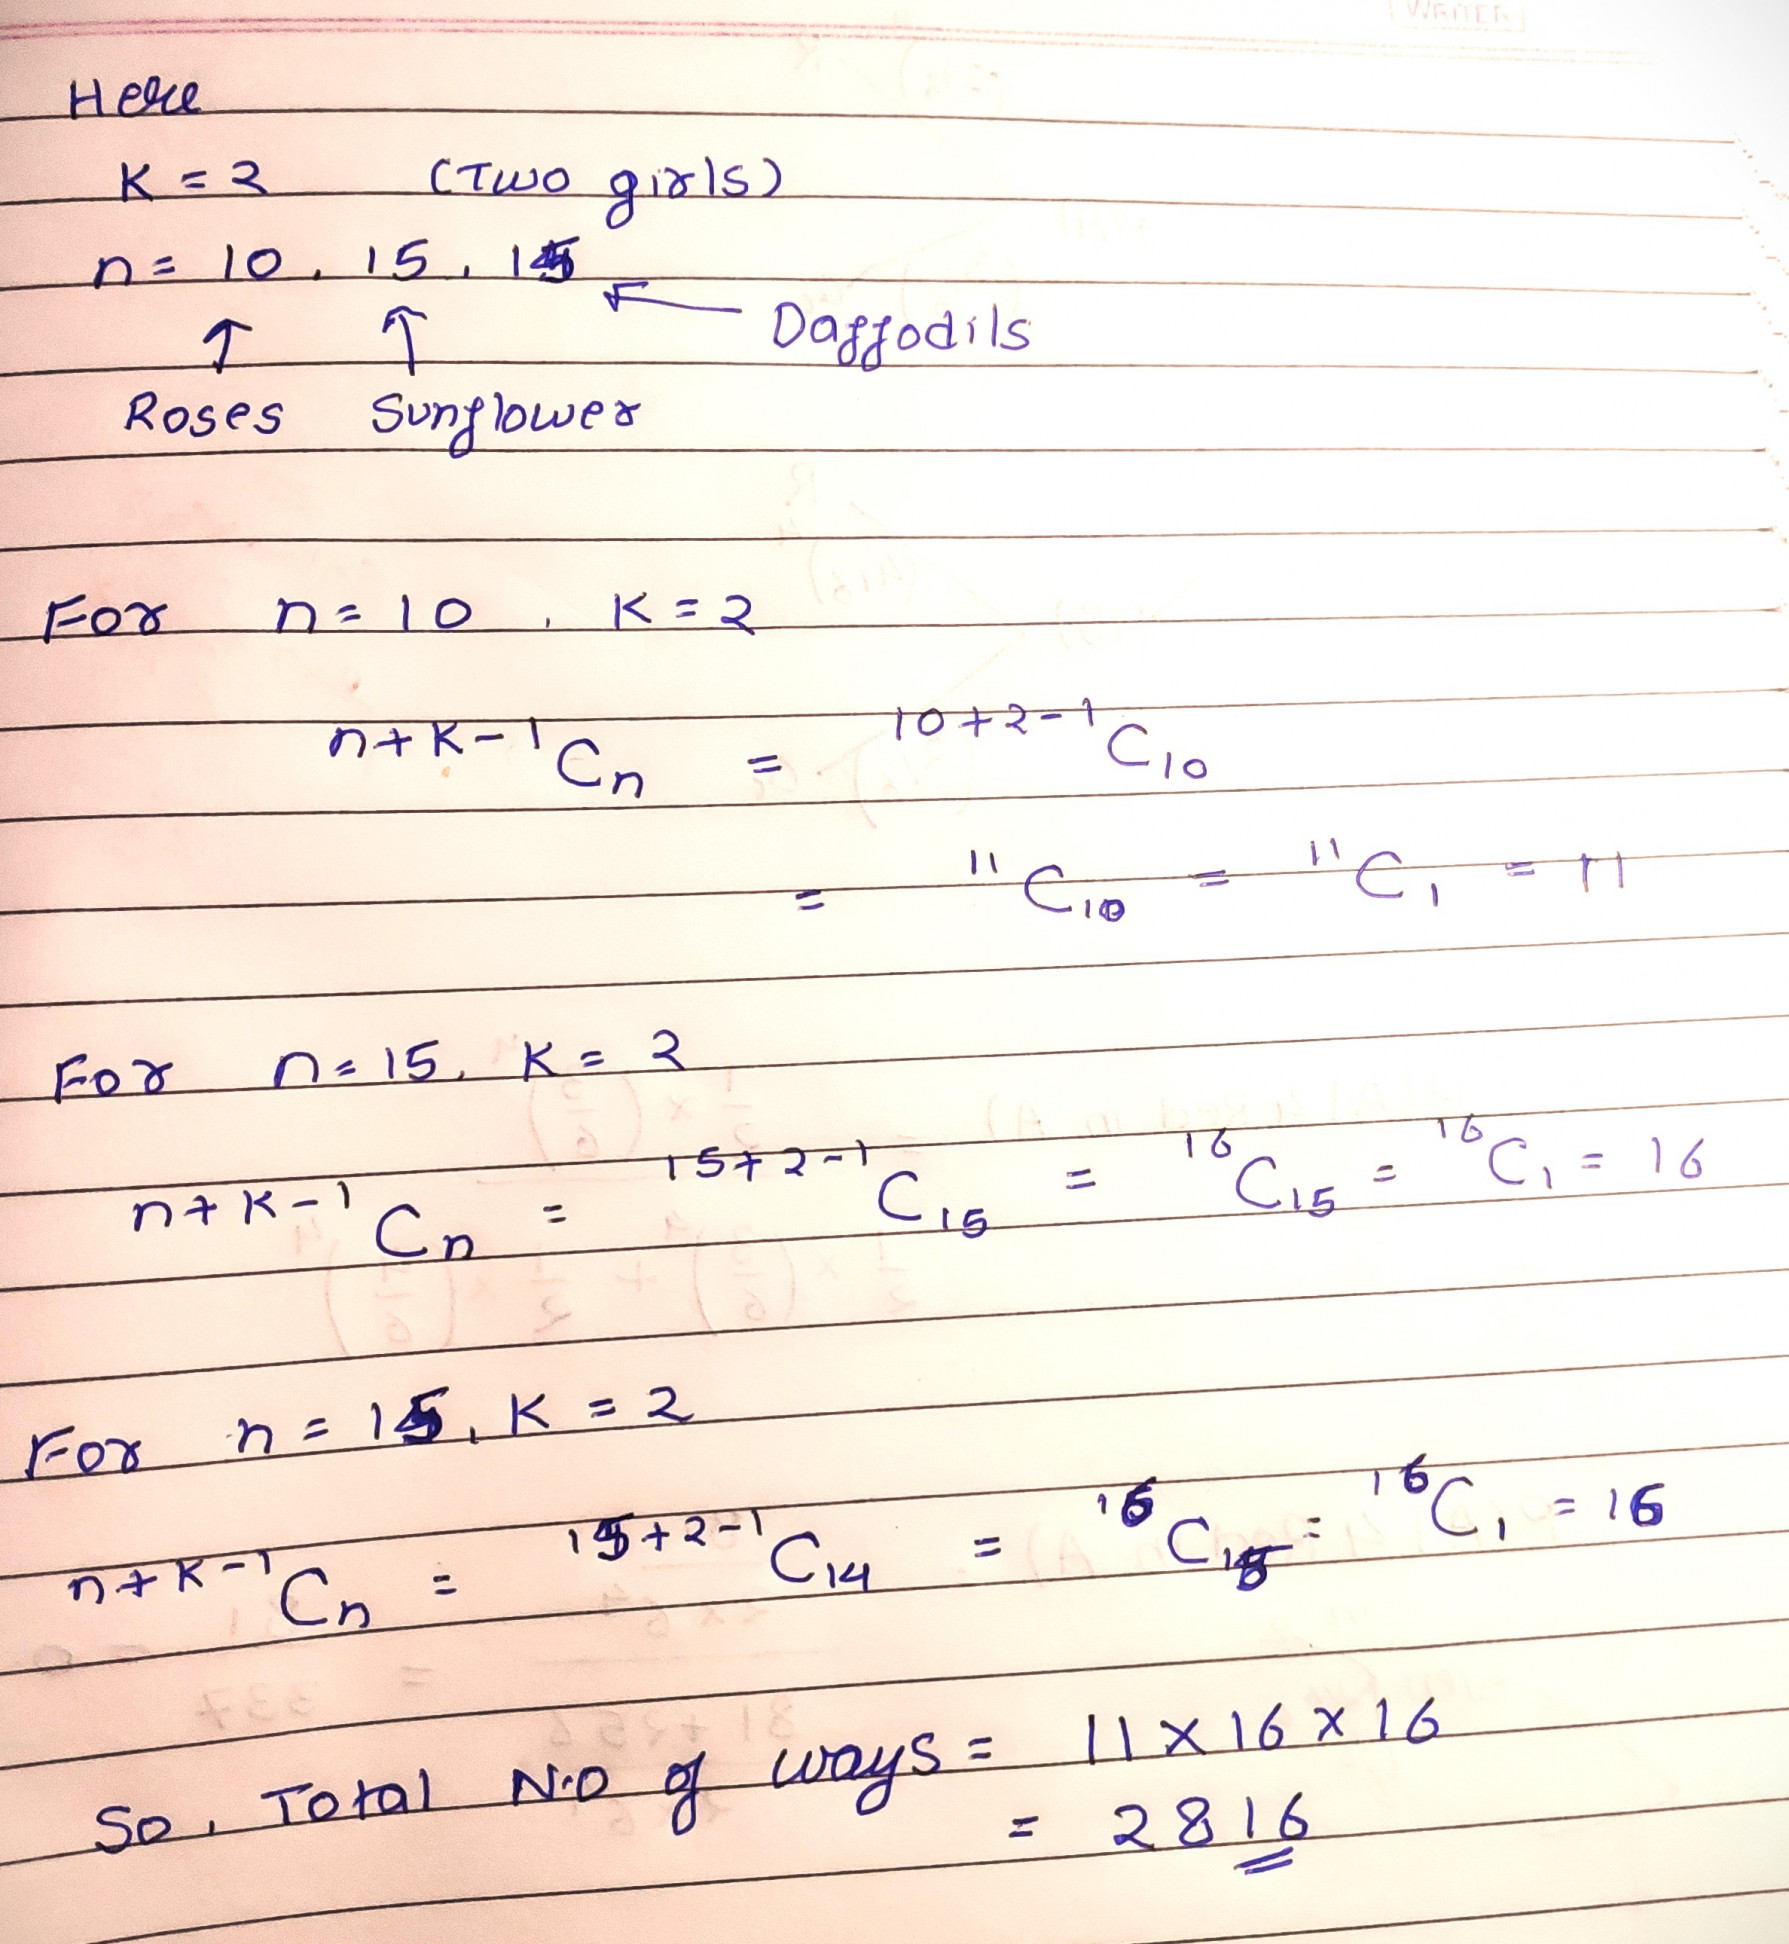 WRITER
Here
K = 2 (Two girls)
n = 10, 15, 15
↑ ↑ ← Daffodils
Roses Sunflower
For n = 10, K = 2
n+K-1Cn = 10+2-1C10
= 11C10 = 11C1 = 11
For n = 15, K = 2
n+K-1Cn = 15+2-1C15 = 16C15 = 16C1 = 16
For n = 15, K = 2
n+K-1Cn = 15+2-1C14 = 16C15 = 16C1 = 16
So, Total N.O of ways = 11 x 16 x 16
= 2816